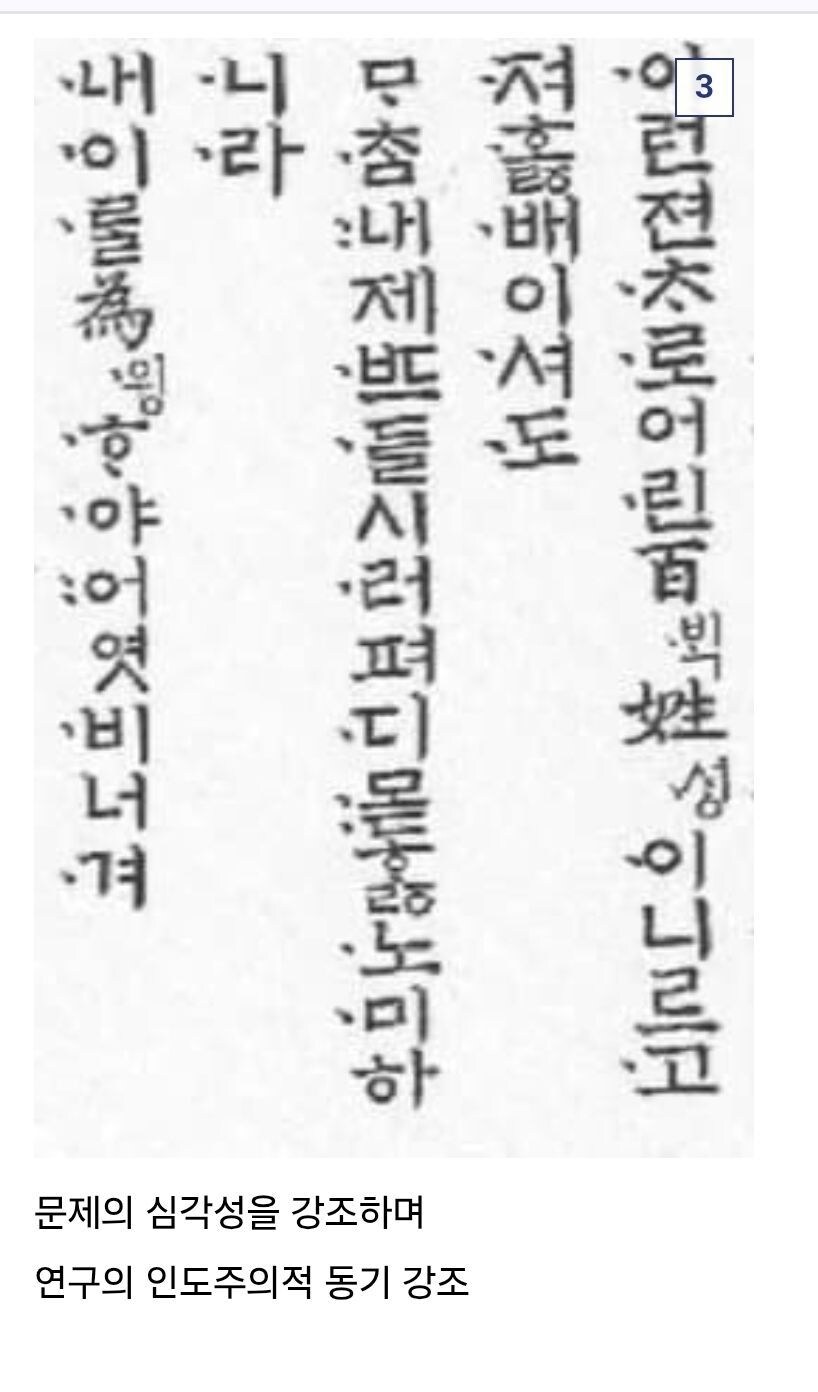 3
·이런젼·ᄎᆞ·로어·린百·ᄇᆡᆨ姓·셩·이니르·고
·져·호ᇙ·배이·셔·도
ᄆᆞ·ᄎᆞᆷ:내제·ᄠᅳ·들시·러펴·디:몯ᄒᆞᇙ·노·미하
·니·라
·내·이·ᄅᆞᆯ為·윙·ᄒᆞ·야:어엿·비너·겨
문제의 심각성을 강조하며
연구의 인도주의적 동기 강조